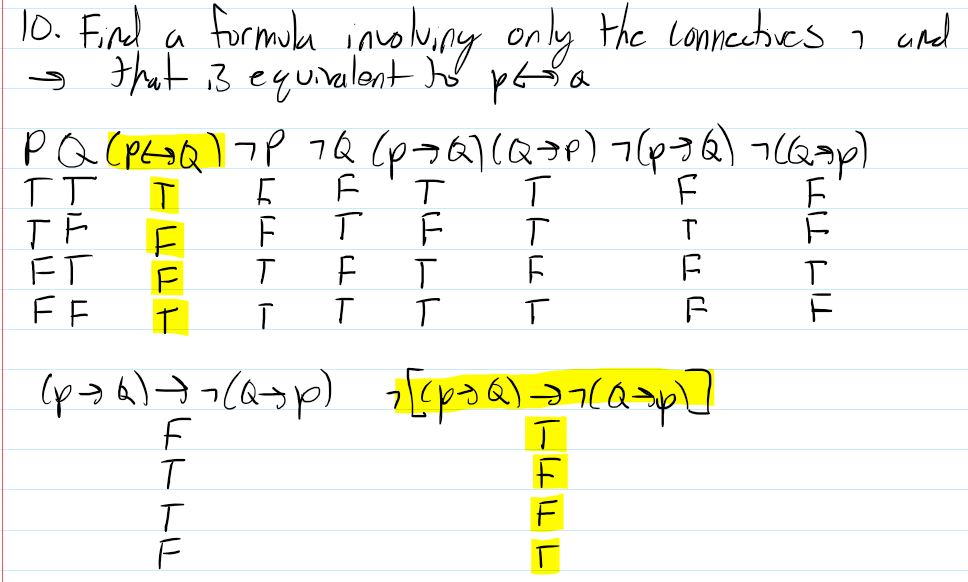 10. Find a formula involving only the connectives ¬ and
→ that is equivalent to p↔Q
P Q (p↔Q) ¬P ¬Q (p→Q) (Q→p) ¬(p→Q) ¬(Q→p)
T T T F F T T F F
T F F F T F T T F
F T F T F T F F T
F F T T T T T F F
(p→Q)→¬(Q→p) ¬[(p→Q)→¬(Q→p)]
F T
T F
T F
F T